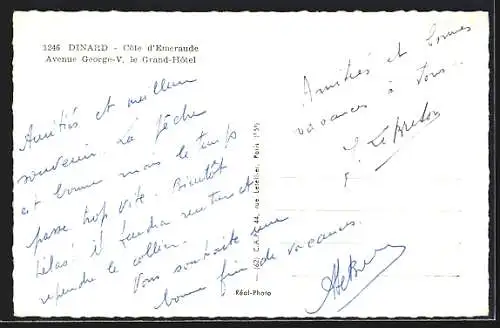 1246 DINARD - Côte d'Emeraude
Avenue George-V, le Grand-Hôtel
Amitiés et meilleur
souvenir. La pêche
est bonne mais le temps
passe trop vite. Bientôt
hélas! il faudra rentrer et
reprendre le collier.
Vous souhaite une
bonne fin de vacances.
Amitiés et bonnes
vacances à tous.
Le Breton
44, rue Letellier, Paris (15e)
Réal-Photo